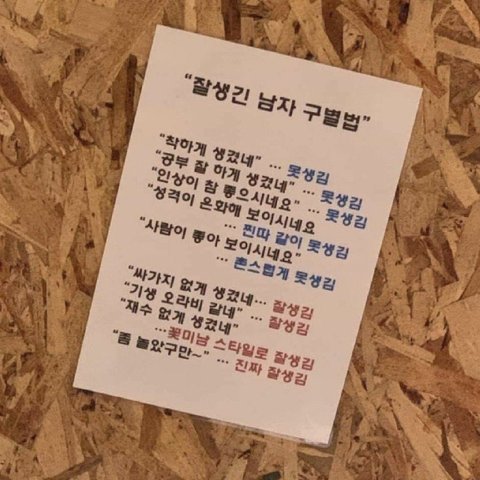 “잘생긴 남자 구별법”
“착하게 생겼네” … 못생김
“공부 잘 하게 생겼네” … 못생김
“인상이 참 좋으시네요” … 못생김
“성격이 온화해 보이시네요
… 찐따 같이 못생김
“사람이 좋아 보이시네요”
… 촌스럽게 못생김
“싸가지 없게 생겼네… 잘생김
“기생 오라비 같네” … 잘생김
“재수 없게 생겼네”
…꽃미남 스타일로 잘생김
“좀 놀았구만~” … 진짜 잘생김